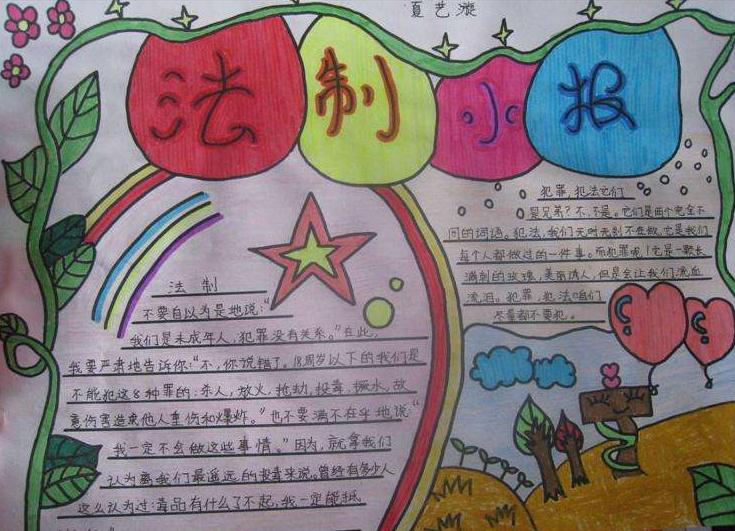 夏艺漩
法制小报
法制
不要自以为是地说："
我们是未成年人，犯罪没有关系。"在此，
我要严肃地告诉你："不，你说错了。18周岁以下的我们是
不能犯这8种罪的：杀人，放火，抢劫，投毒，贩水，故
意伤害造隶他人重伤和爆炸。"也不要满不在乎地说："
我一定不会做这些事情。"因为，就拿我们
认为离我们最遥远的投毒来说。曾经有多少人
这么认为过：毒品有什么了不起，我一定能抵
犯罪，犯法它们
是兄弟？不，不是。它们是两个完全不
同的词语。犯法，我们无时无刻不在做，它是我们
每个人都做过的一件事。而犯罪呢！它是一颗长
满刺的玫瑰，美丽诱人，但是会让我们流血
流泪。犯罪，犯法咱们
尽量都不要犯。